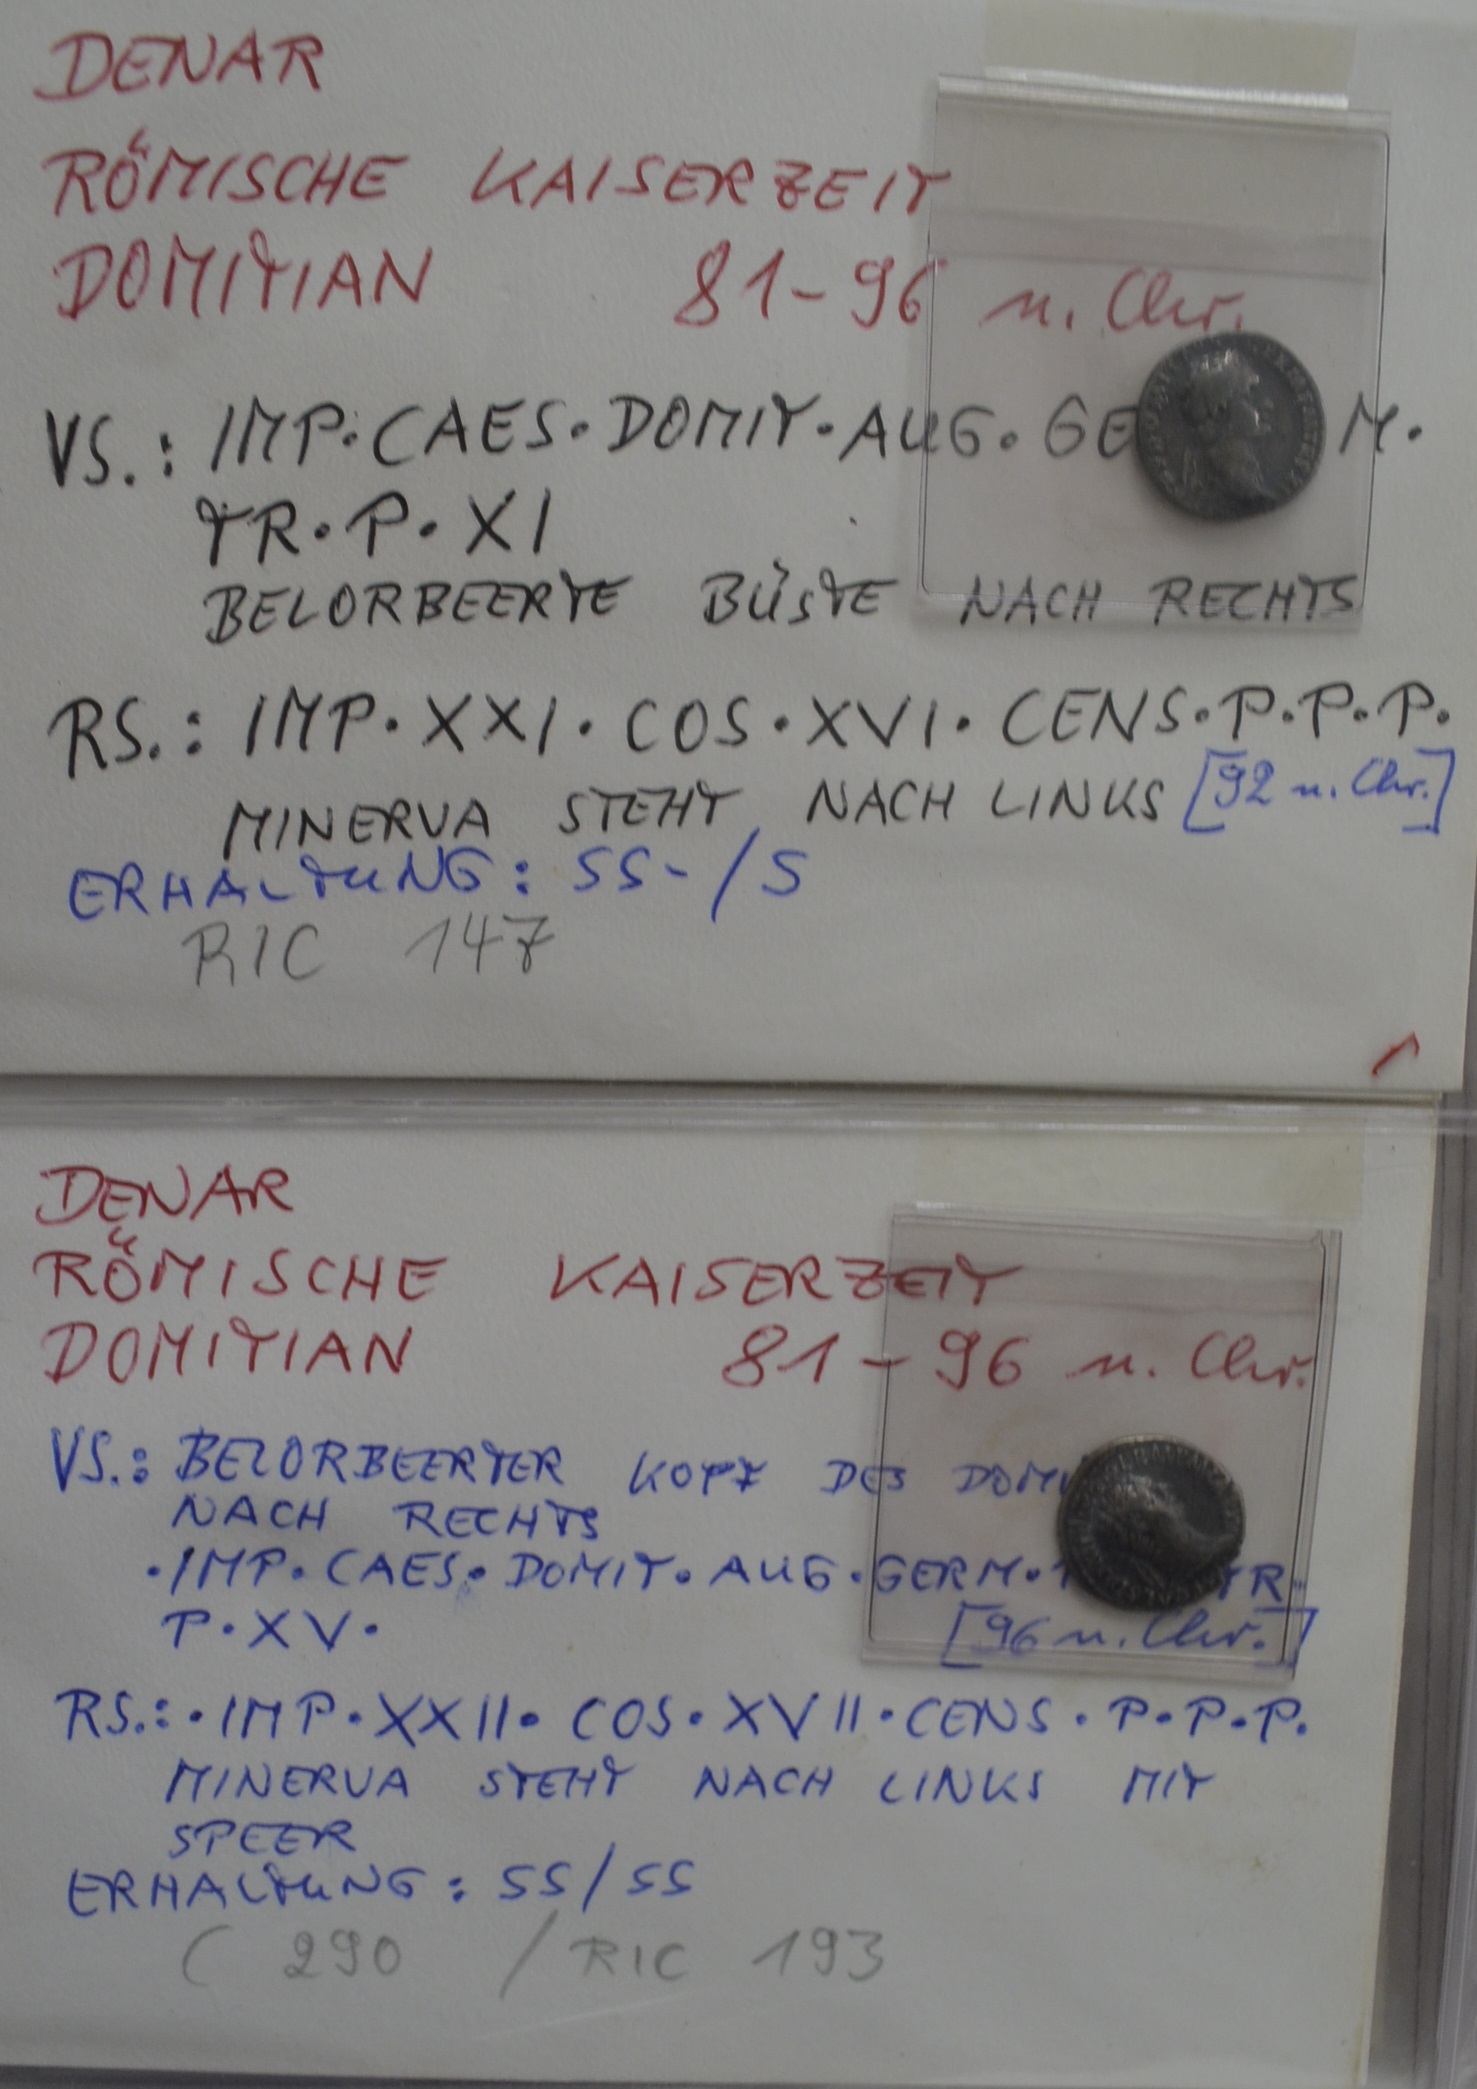 DENAR
RÖMISCHE KAISERZEIT
DOMITIAN 81-96 n. Chr.
VS.: IMP·CAES·DOMIT·AUG·GE M.
TR·P·XI
BELORBEERTE BÜSTE NACH RECHTS
RS.: IMP·XXI·COS·XVI·CENS·P·P·P.
MINERVA STEHT NACH LINKS [92 n. Chr.]
ERHALTUNG: SS-/S
RIC 147
DENAR
RÖMISCHE KAISERZEIT
DOMITIAN 81-96 n. Chr.
VS.: BELORBEERTER KOPF DES DOMI
NACH RECHTS
·IMP·CAES·DOMIT·AUG·GERM· TR·
P·XV·
[96 n. Chr.]
RS.: ·IMP·XXII·COS·XVII·CENS·P·P·P.
MINERVA STEHT NACH LINKS MIT
SPEER
ERHALTUNG: SS/SS
C 290 / RIC 193